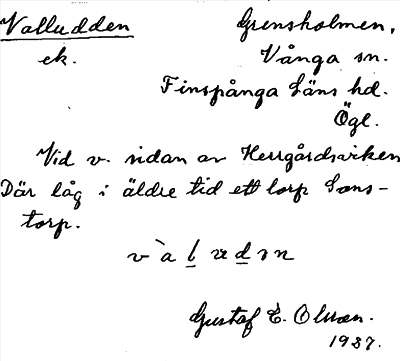 Valludden Grensholmen,
ek. Vånga sn.
Finspånga Läns hd.
Ögl.
Vid v. sidan av Herrgårdsviken
Där låg i äldre tid ett torp Lans-
torp.
Gustaf E. Olsson.
1937.